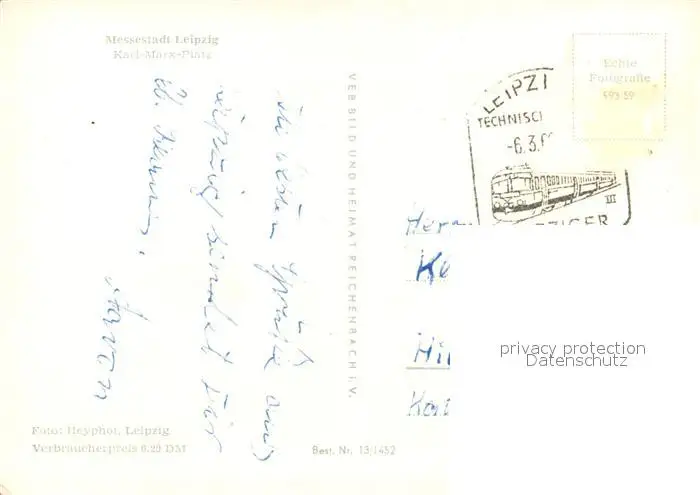 Messestadt Leipzig
Karl-Marx-Platz
Echte
Fotografie
593 59
LEIPZI
TECHNISC
-6.3.6
III
ZIGER
VEB BILD UND HEIMAT REICHENBACH i.V.
Die besten Grüße aus
Leipzig sendet Dir
Herrn
Ke
Hi
privacy protection
Datenschutz
Foto: Heyphot, Leipzig
Verbraucherpreis 0.20 DM
Best. Nr. 13/1452